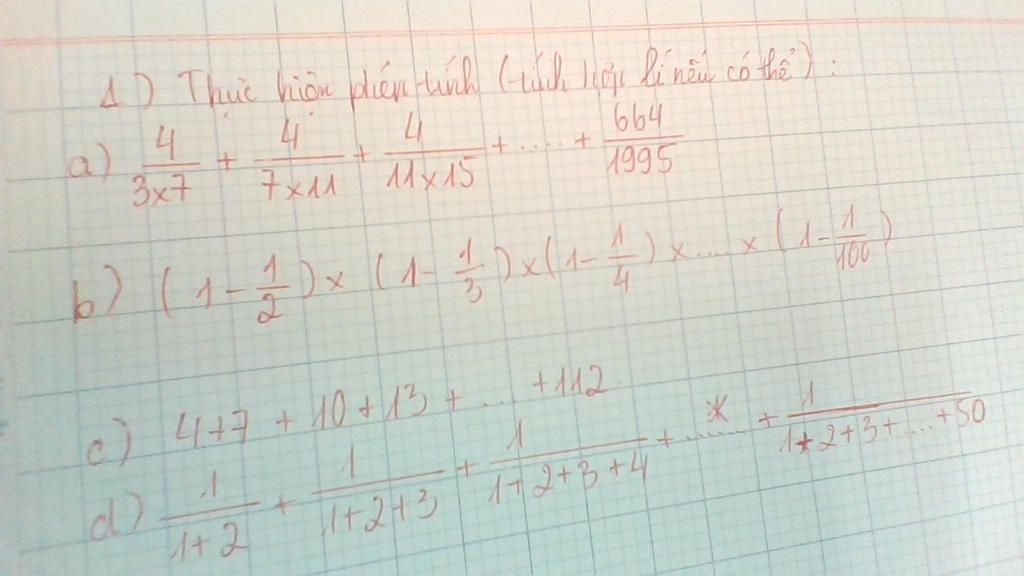 1) Thực hiện phép tính (tính hợp lí nếu có thể):
a) 4/(3x7) + 4/(7x11) + 4/(11x15) + .... + 664/1995
b) (1 - 1/2) x (1 - 1/3) x (1 - 1/4) x .... x (1 - 1/100)
c) 4+7 + 10 + 13 + ... +112
d) 1/(1+2) + 1/(1+2+3) + 1/(1+2+3+4) + ...... * + 1/(1+2+3+...+50)